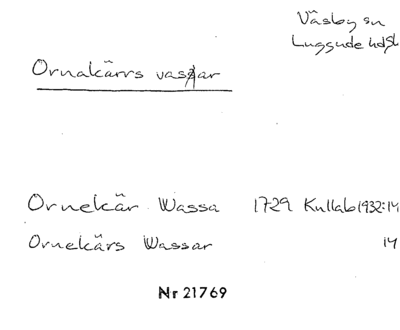 Väsby sn
Luggude hd Sk
Ornakärrs vassar
Ornekär Wassa 1729 Kullab 1932:14
Ornekärs Wassar 14
Nr 21769